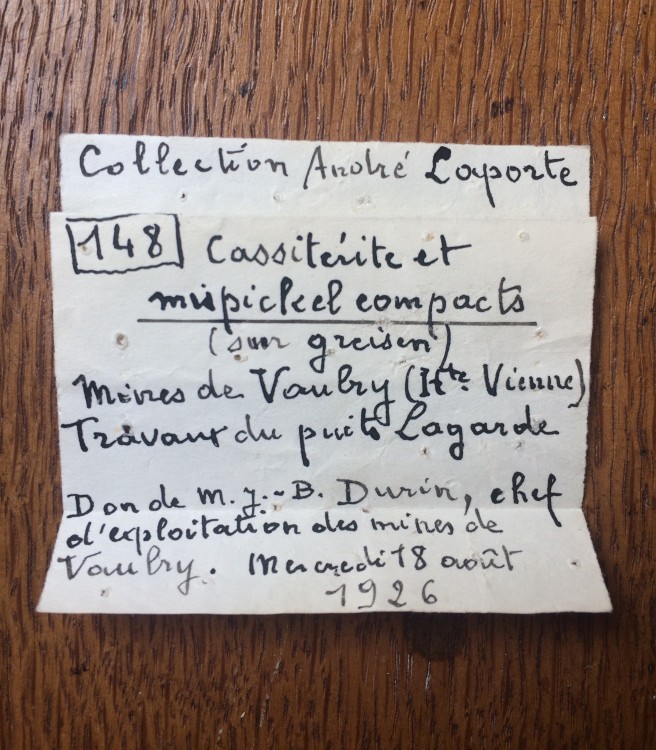 Collection André Laporte
148 Cassitérite et
mispickel compacts
(sur greisen)
Mines de Vaulry (Hte. Vienne)
Travaux du puits Lagarde
Don de M. J.-B. Durin, chef
d'exploitation des mines de
Vaulry. Mercredi 18 août
1926